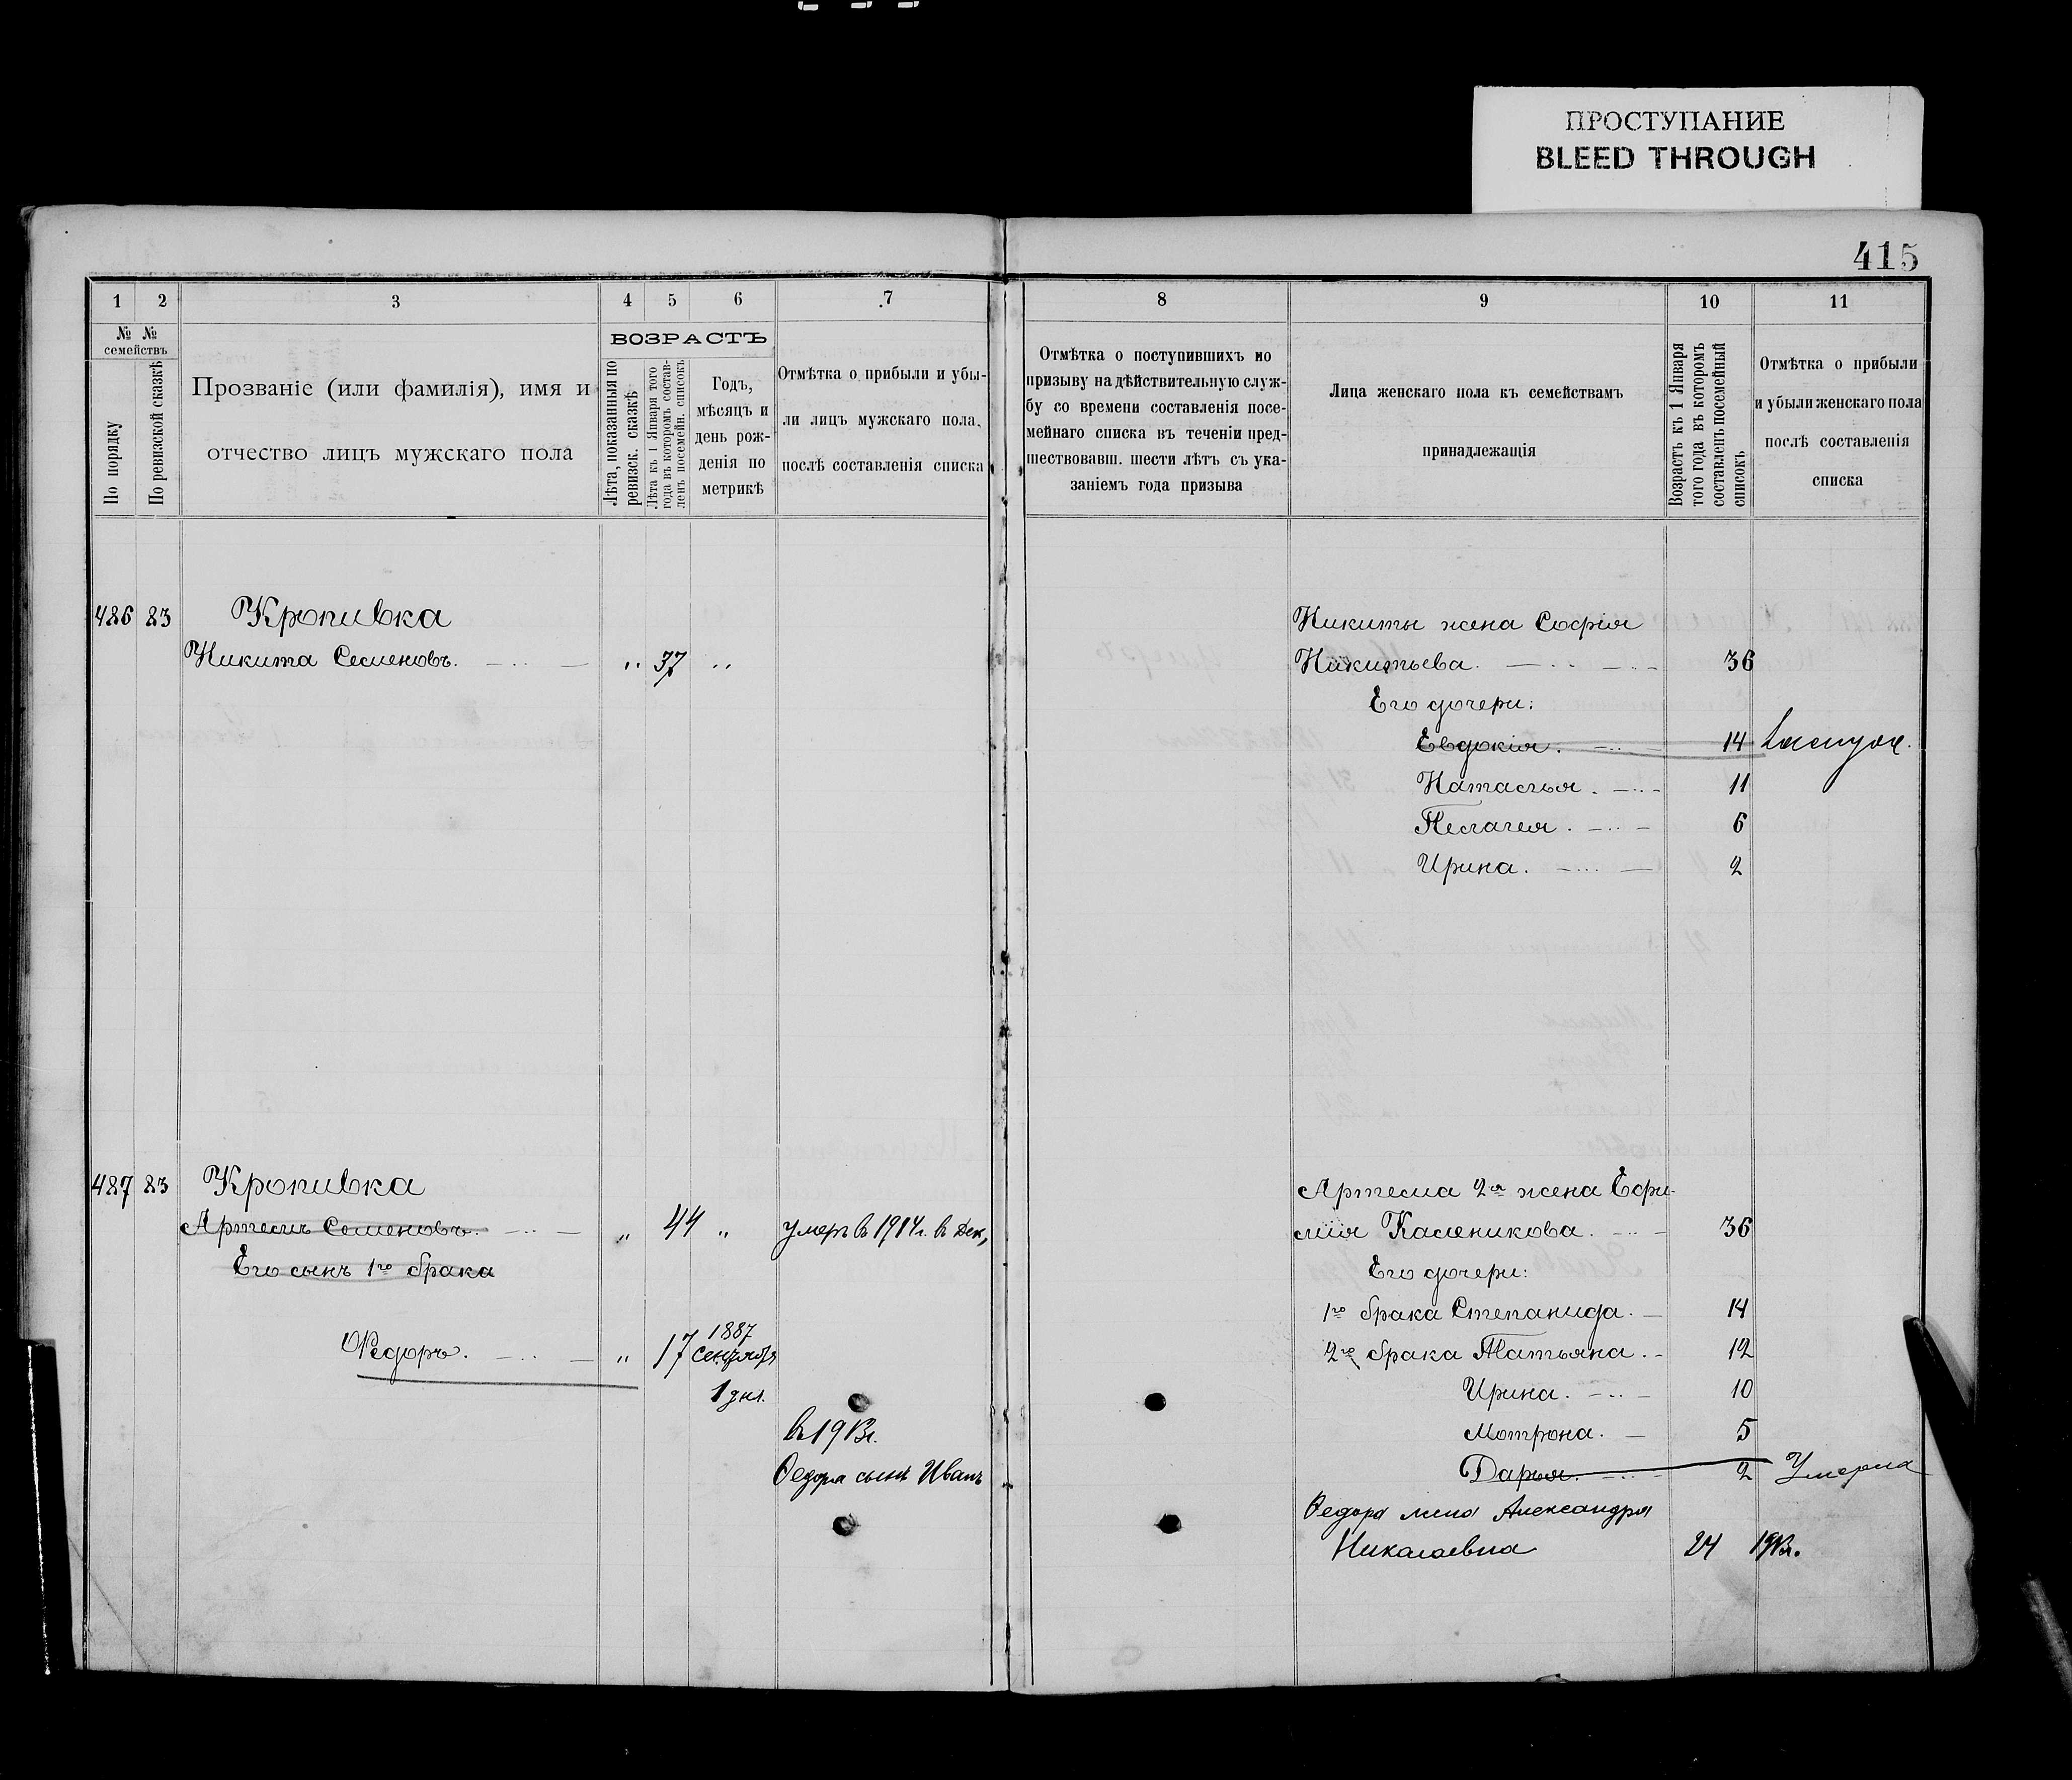 ПРОСТУПАНИЕ
BLEED THROUGH
415
1 2 3 4 5 6 7 8 9 10 11
№ № семействъ
По порядку
По ревизской сказкѣ
Прозваніе (или фамилія), имя и
отчество лицъ мужскаго пола
ВОЗРАСТЪ
Лѣта, показанныя по
ревизск. сказкѣ
Лѣта къ 1 Января того
года въ которомъ состав-
ленъ посемейн. списокъ
Годъ,
мѣсяцъ и
день рож-
денія по
метрикѣ
Отмѣтка о прибыли и убы-
ли лицъ мужскаго пола,
послѣ составленія списка
Отмѣтка о поступившихъ по
призыву на дѣйствительную служ-
бу со времени составленія посе-
мейнаго списка въ теченіи пред-
шествовавш. шести лѣтъ съ ука-
заніемъ года призыва
Лица женскаго пола къ семействамъ
принадлежащія
Возрастъ къ 1 Января
того года въ которомъ
составленъ посемейный
списокъ
Отмѣтка о прибыли
и убыли женскаго пола
послѣ составленія
списка
486 83 Кропивка
Никита Семеновъ. 37
Никиты жена Софія
Никитьева. 36
Его дочери:
Евдокія. 14
Натасья. 11
Пелагея. 6
Ирина. 2
487 83 Кропивка
Артемъ Семеновъ. 44 умеръ в 1914г. в Дек,
Его сынъ 1го брака
Федоръ. 17 1887
Сентября
1 дня.
в 1913г.
Федора сынъ Иванъ
Артема 2я жена Ефи-
мія Касеникова. 36
Его дочери:
1го брака Степанида. 14
2го брака Татьяна. 12
Ирина. 10
Мотрона. 5
Дарья. 2 Умерла
Федора жена Александра
Николаевна 24 1913г.